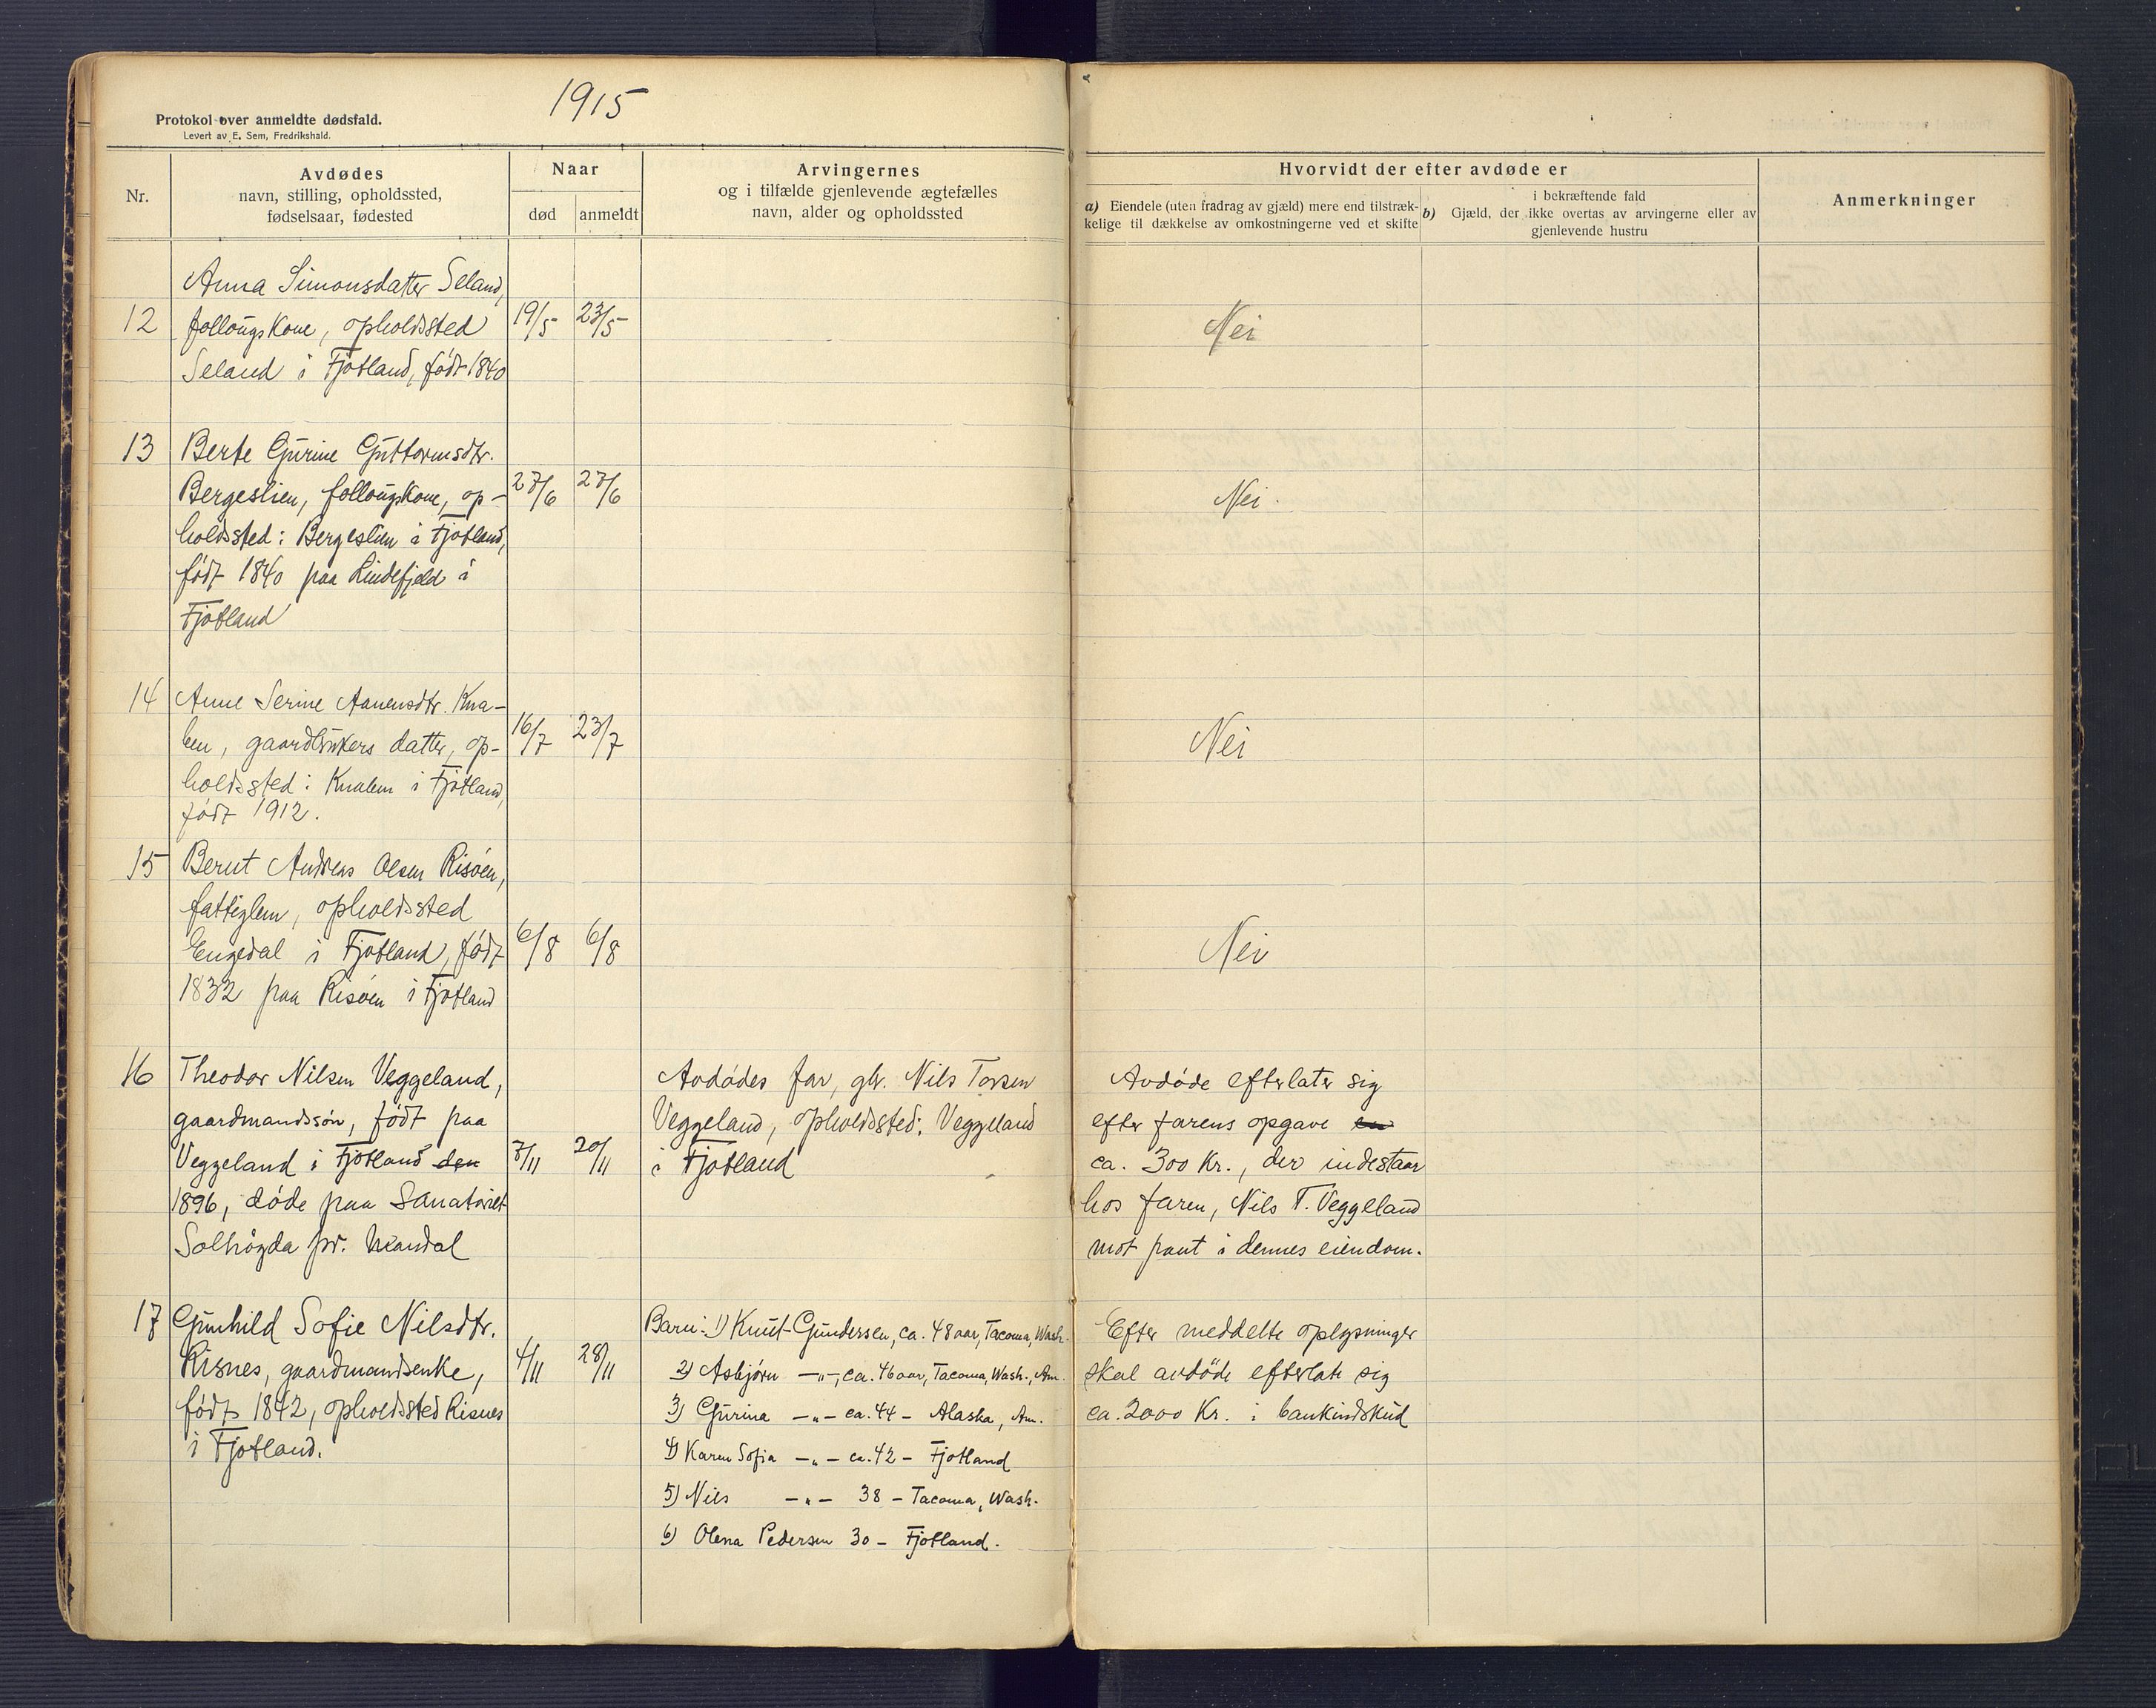 1915
Protokol over anmeldte dødsfald.
Levert av E. Sem, Fredrikshald.
Nr.
Avdødes
navn, stilling, opholdssted,
fødselsaar, fødested
Naar
død
anmeldt
Arvingernes
og i tilfælde gjenlevende ægtefælles
navn, alder og opholdssted
Hvorvidt der efter avdøde er
a) Eiendele (uten fradrag av gjæld) mere end tilstræk-
kelige til dækkelse av omkostningerne ved et skifte
i bekræftende fald
b) Gjæld, der ikke overtas av arvingerne eller av
gjenlevende hustru
Anmerkninger
Anna Simonsdatter Seland,
12 follougskone, opholdssted 19/5 23/5 Nei
Seland i Fjotland, født 1840
13 Berte Gurine Guttormsdtr.
Bergeslien, follougskone, op- 27/6 27/6 Nei.
holdssted: Bergeslien i Fjotland,
født 1840 paa Lindefjeld i
Fjotland
14 Anne Serine Aanensdtr. Kna-
ben, gaardbrukers datter, op- 16/7 23/7 Nei
holdssted: Knaben i Fjotland,
født 1912.
15 Bernt Andreas Olsen Risøen,
fattiglem, opholdssted
Engedal i Fjotland, født 6/8 6/8 Nei
1832 paa Risøen i Fjotland
16 Theodor Nilsen Veggeland, Avdødes far, gbr. Nils Torsen Avdøde efterlater sig
gaardmandssøn, født paa Veggeland, opholdssted: Veggeland efter farens opgave en
Veggeland i Fjotland den 7/11 20/11 i Fjotland ca. 300 Kr., der indestaar
1896, døde paa Sanatoriet hos faren, Nils T. Veggeland
Solhøgda pr. Mandal mot pant i dennes eiendom.
17 Gunhild Sofie Nilsdtr. Barn: 1) Knut Gundersen, ca. 48 aar, Tacoma, Wash. Efter meddelte oplysninger
Risnes, gaardmandsenke, 4/11 28/11 2) Asbjørn -"-, ca. 46 aar, Tacoma, Wash., Am. skal avdøde efterlate sig
født 1842, opholdssted Risnes 3) Gurina -"- ca. 44 - Alaska, Am. ca. 2000 Kr. i bankindskud
i Fjotland. 4) Karen Sofia -"- ca. 42 - Fjotland
5) Nils -"- 38 - Tacoma, Wash.
6) Olena Pedersen 30 - Fjotland.